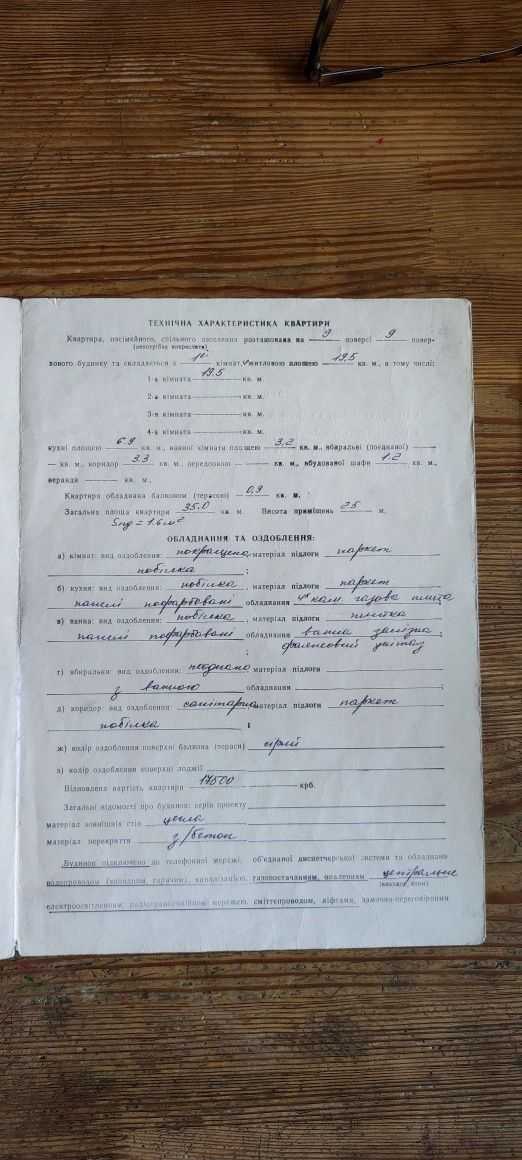 ТЕХНІЧНА ХАРАКТЕРИСТИКА КВАРТИРИ
Квартира, посімейного, спільного заселення розташована на 9 поверсі 9 повер-
(непотрібне викреслити)
хового будинку та складається з 1ої кімнат, житловою площею 19.5 кв. м, в тому числі:
1-а кімната 19.5 кв. м.
2-а кімната кв. м.
3-я кімната кв. м.
4-а кімната кв. м.
кухні площею 6.9 кв. м., ванної кімнати площею 3,2 кв. м., вбиральні (поєднаної)
кв. м., коридор 3.3 кв. м., передпокою кв. м., вбудованої шафи 1.2 кв. м.,
веранди кв. м.
Квартира обладнана балконом (терасою) 0,9 кв. м.
Загальна площа квартири 35.0 кв. м. Висота приміщень 2.5 м.
= 1.6 м²
ОБЛАДНАННЯ ТА ОЗДОБЛЕННЯ:
а) кімнат: вид оздоблення: покращена, матеріал підлоги паркет
побілка ;
б) кухня: вид оздоблення: побілка, матеріал підлоги паркет
панелі пофарбовані обладнання 4х кам. газова плита
в) ванна: вид оздоблення: побілка, матеріал підлоги плитка
панелі пофарбовані обладнання ванна залізна,
; фаянсовий унітаз
г) вбиральня: вид оздоблення: поєднано матеріал підлоги
з ванною обладнання ;
д) коридор: вид оздоблення: санітарна матеріал підлоги паркет
побілка ;
ж) колір оздоблення поверхні балкона (тераси) сірий
з) колір оздоблення поверхні лоджії
Відновлена вартість квартири 17500 крб.
Загальні відомості про будинок: серія проекту
матеріал зовнішніх стін цегла
матеріал перекриття з/бетон
Будинок підключено до телефонної мережі, об'єднаної диспетчерської системи та обладнано
водопроводом (холодним, гарячим), каналізацією, газопостачанням, опаленням центральне
електроосвітленням, радіотрансляційною мережею, сміттєпроводом, ліфтами, замочно-переговорним